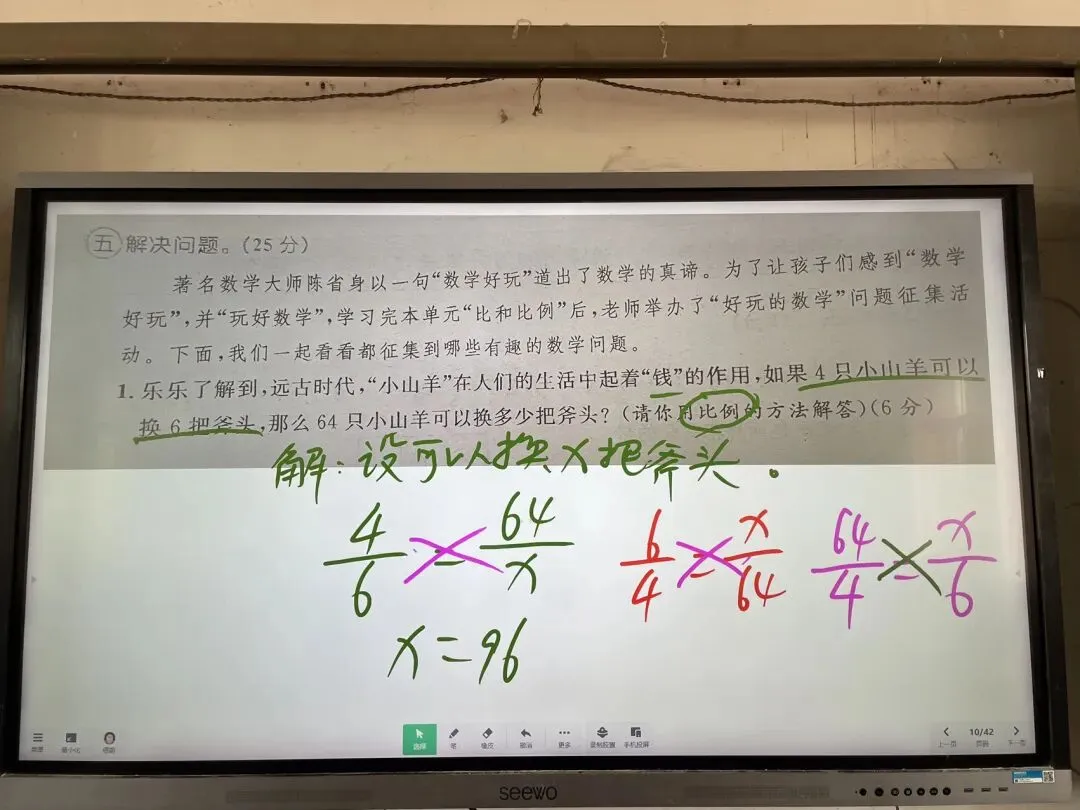 五 解决问题。(25 分)
著名数学大师陈省身以一句“数学好玩”道出了数学的真谛。为了让孩子们感到“数学
好玩”,并“玩好数学”,学习完本单元“比和比例”后,老师举办了“好玩的数学”问题征集活
动。下面,我们一起看看都征集到哪些有趣的数学问题。
1. 乐乐了解到,远古时代,“小山羊”在人们的生活中起着“钱”的作用,如果 4 只小山羊可以
换 6 把斧头,那么 64 只小山羊可以换多少把斧头？(请你用比例的方法解答)(6 分)
解:设可以换x把斧头。
4/6 = 64/x 6/4 = x/64 64/4 = x/6
x=96
选择 笔 橡皮 撤消 更多 录制胶囊 手机投屏
10/42
上一页 页面 下一页
seewo